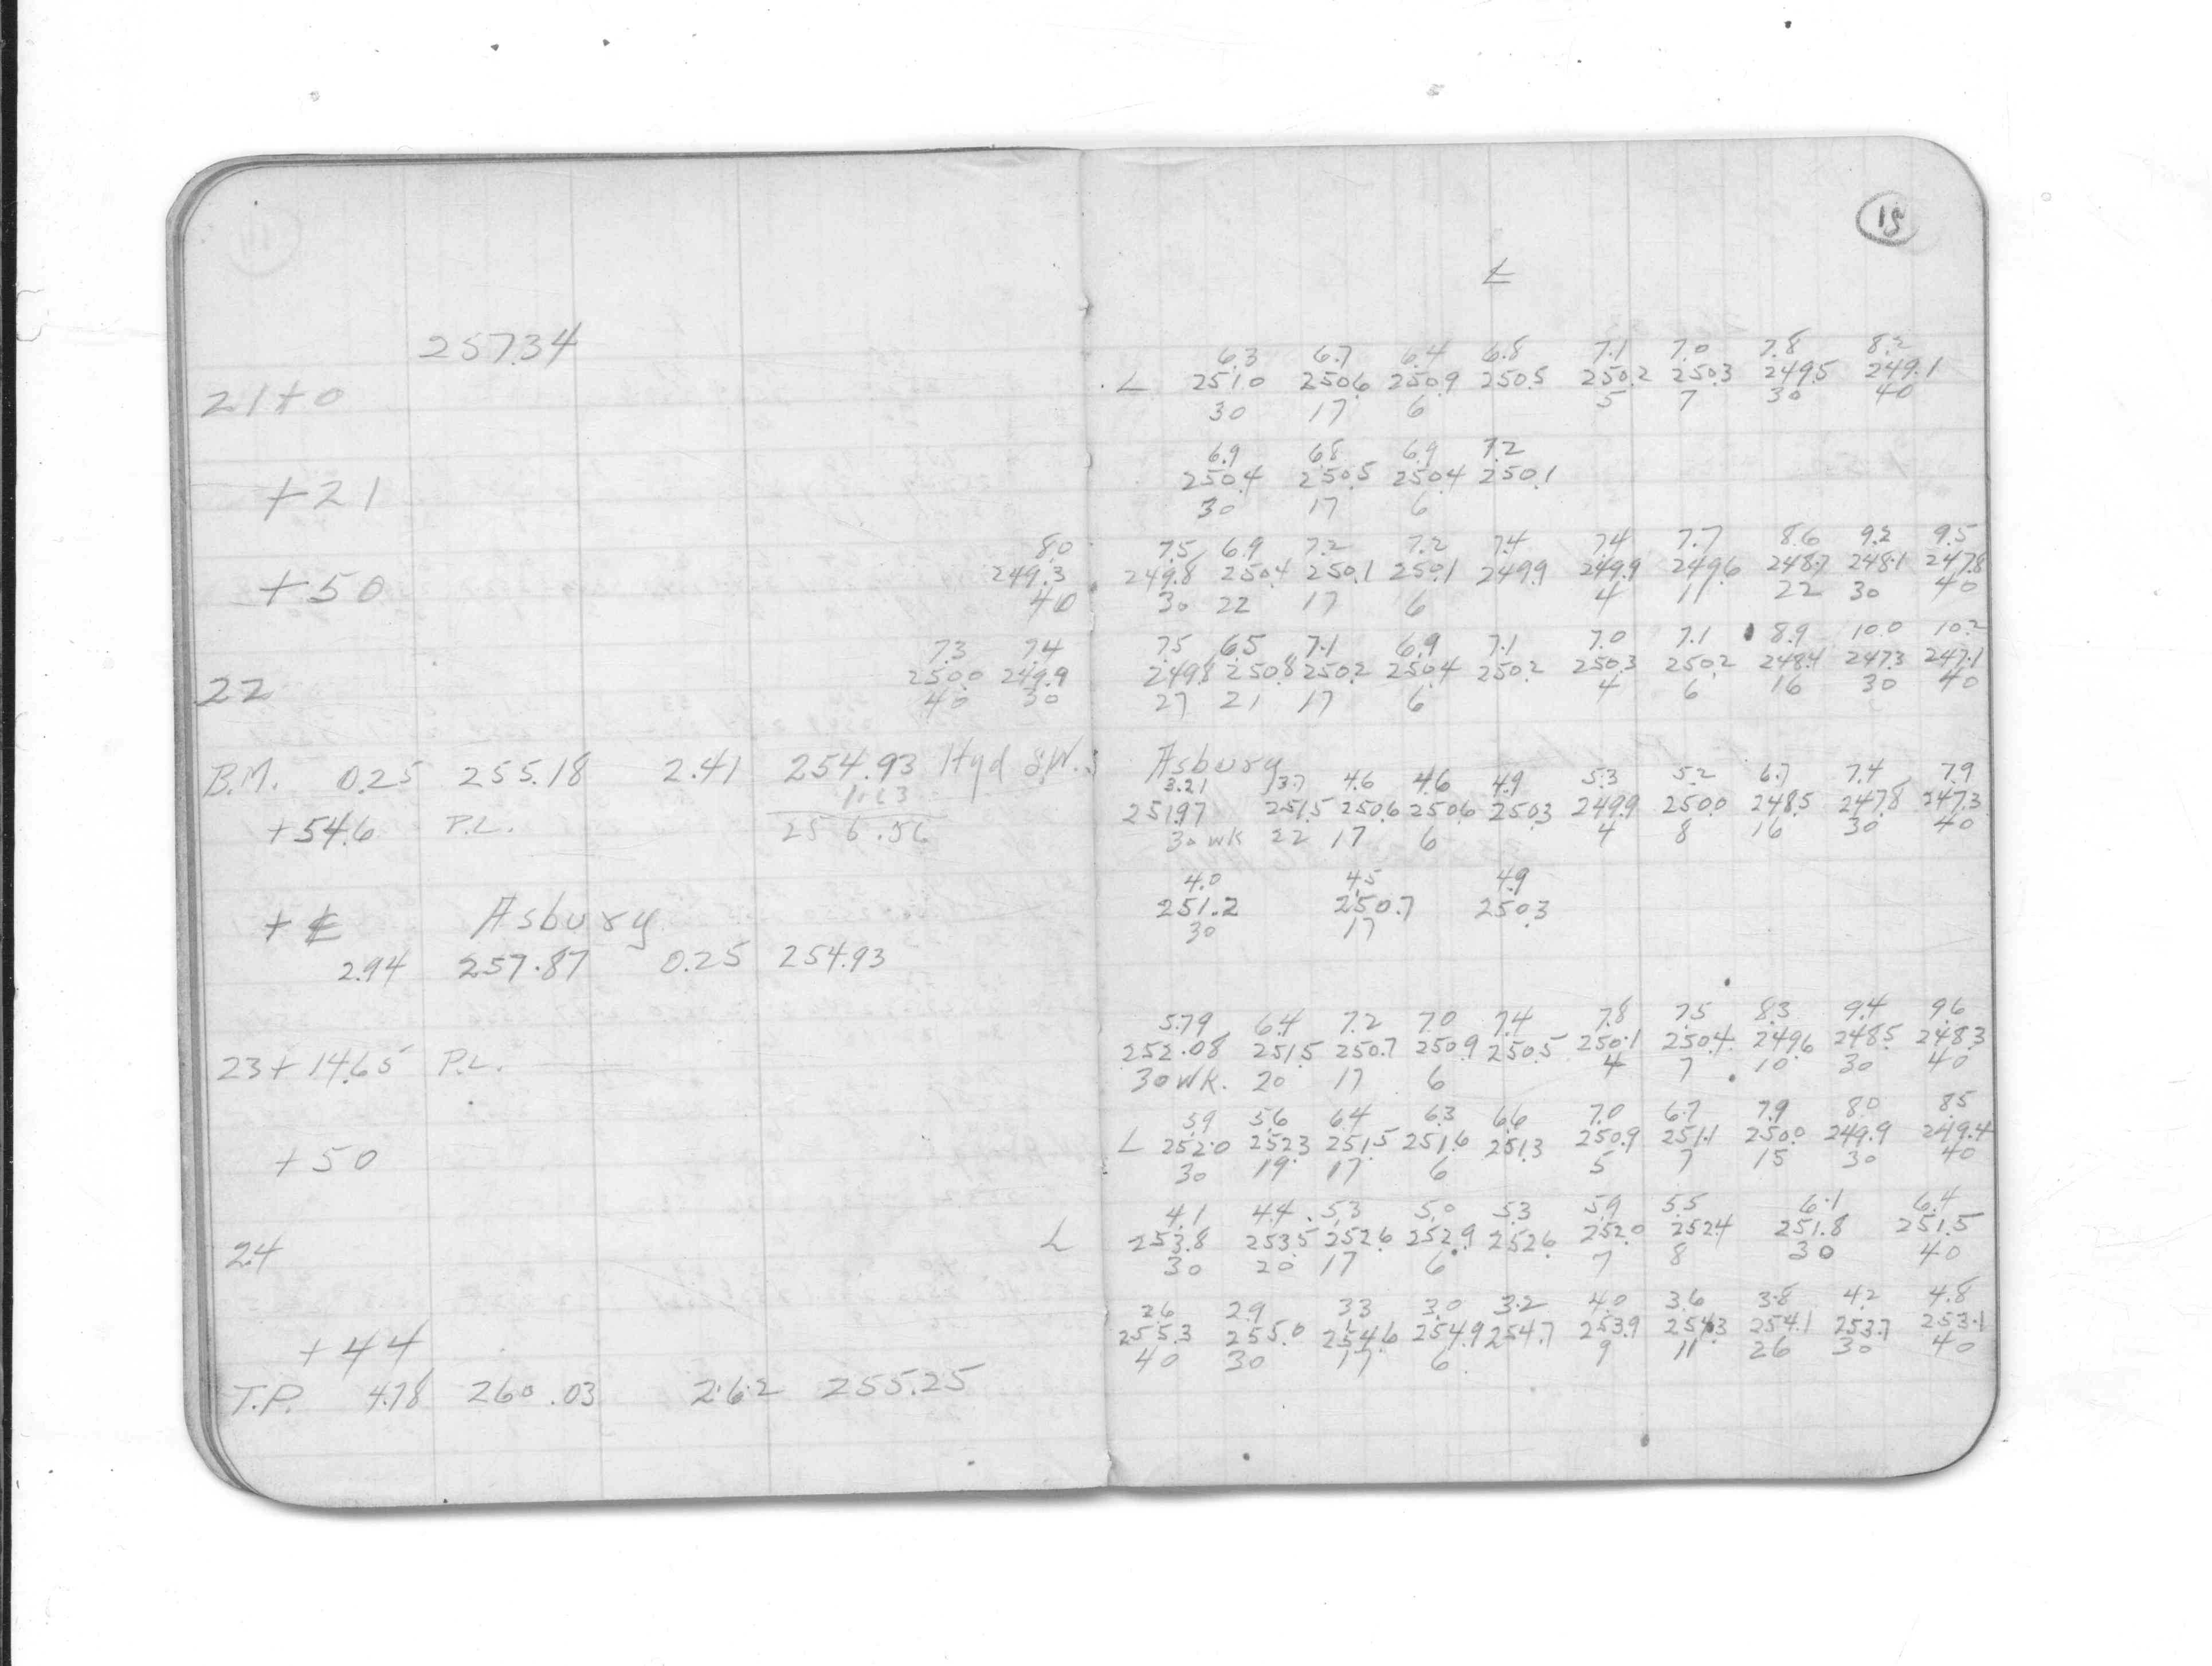 15
℄
257.34
6.3 6.7 6.4 6.8 7.1 7.0 7.8 8.2
21+0 L 251.0 250.6 250.9 250.5 250.2 250.3 249.5 249.1
30 17 6 5 7 30 40
6.9 6.8 6.9 7.2
+21 250.4 250.5 250.4 250.1
30 17 6
8.0 7.5 6.9 7.2 7.2 7.4 7.4 7.7 8.6 9.2 9.5
+50 249.3 249.8 250.4 250.1 250.1 249.9 249.9 249.6 248.7 248.1 247.8
40 30 22 17 6 4 11 22 30 40
7.3 7.4 7.5 6.5 7.1 6.9 7.1 7.0 7.1 8.9 10.0 10.2
22 250.0 249.9 249.8 250.8 250.2 250.4 250.2 250.3 250.2 248.4 247.3 247.1
40 30 27 21 17 6 4 6 16 30 40
B.M. 0.25 255.18 2.41 254.93 Hyd S.W. Asbury
3.21 3.7 4.6 4.6 4.9 5.3 5.2 6.7 7.4 7.9
+54.6 P.L. 256.56 251.97 251.5 250.6 250.6 250.3 249.9 250.0 248.5 247.8 247.3
30 wk 22 17 6 4 8 16 30 40
4.0 4.5 4.9
+ ℄ Asbury 251.2 250.7 250.3
30 17
2.94 257.87 0.25 254.93
5.79 6.4 7.2 7.0 7.4 7.8 7.5 8.3 9.4 9.6
23+14.65 P.L. 252.08 251.5 250.7 250.9 250.5 250.1 250.4 249.6 248.5 248.3
30 WK. 20 17 6 4 7 10 30 40
5.9 5.6 6.4 6.3 6.6 7.0 6.7 7.9 8.0 8.5
+50 L 252.0 252.3 251.5 251.6 251.3 250.9 251.1 250.0 249.9 249.4
30 19 17 6 5 7 15 30 40
4.1 4.4 5.3 5.0 5.3 5.9 5.5 6.1 6.4
24 L 253.8 253.5 252.6 252.9 252.6 252.0 252.4 251.8 251.5
30 20 17 6 7 8 30 40
2.6 2.9 3.3 3.0 3.2 4.0 3.6 3.8 4.2 4.8
+44 255.3 255.0 254.6 254.9 254.7 253.9 254.3 254.1 253.7 253.1
40 30 17 6 9 11 26 30 40
T.P. 4.78 260.03 2.62 255.25